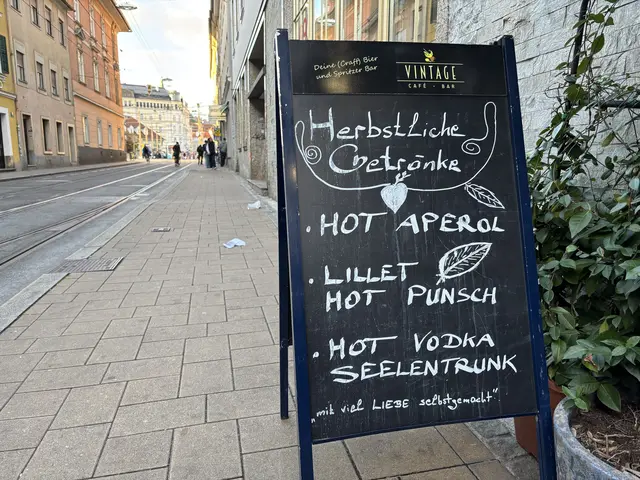 Deine (Craft) Bier
und Spritzer Bar
VINTAGE
CAFÉ · BAR
Herbstliche
Getränke
· HOT APEROL
· LILLET
HOT PUNSCH
· HOT VODKA
SEELENTRUNK
„mit viel LIEBE selbstgemacht"